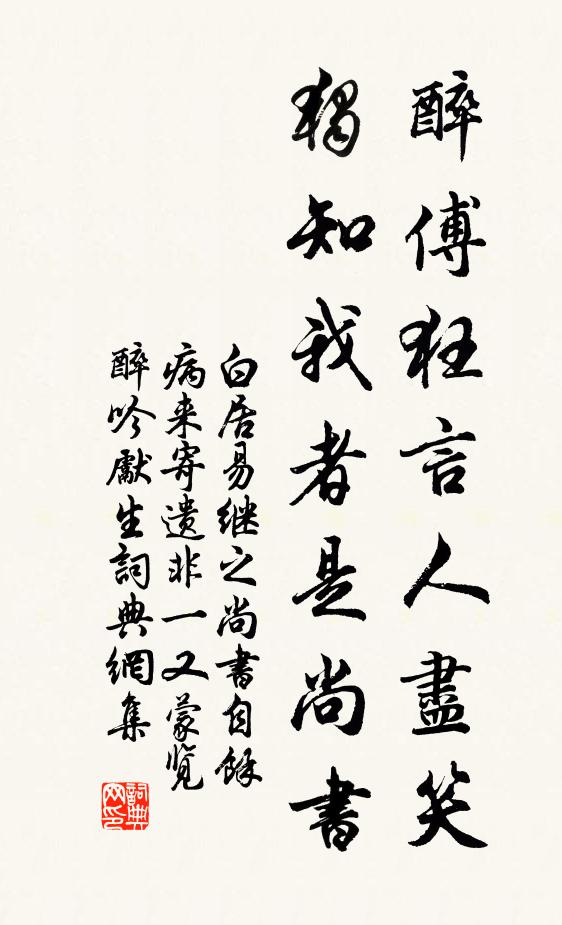 醉傅狂言人盡笑
獨知我者是尚書
白居易继之尚書自餘
病来寄遗非一又蒙览
醉吟獻生詞典網集
詞典
网印